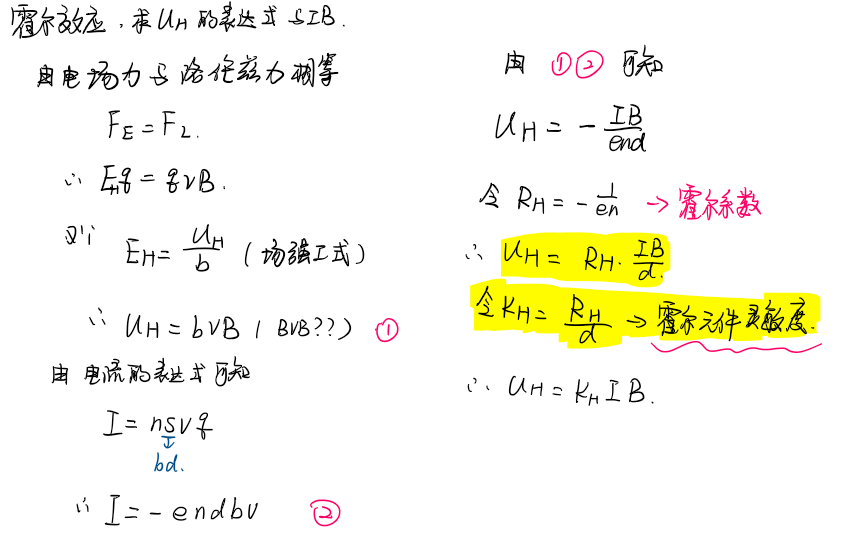 霍尔效应，求 U_H 的表达式 与IB.
由电场力与洛伦兹力相等
F_E = F_L.
∴ E_H q = qvB.
则 E_H = U_H / b （场强公式）
∴ U_H = bvB （BVB??） ①
由 电流的表达式 可知
I = nsvq
bd.
∴ I = - endbv ②
由 ①② 可知
U_H = - IB / end
令 R_H = - 1 / en → 霍尔系数
∴ U_H = R_H · IB / d.
令 K_H = R_H / d → 霍尔元件灵敏度.
∴ U_H = K_H I B.